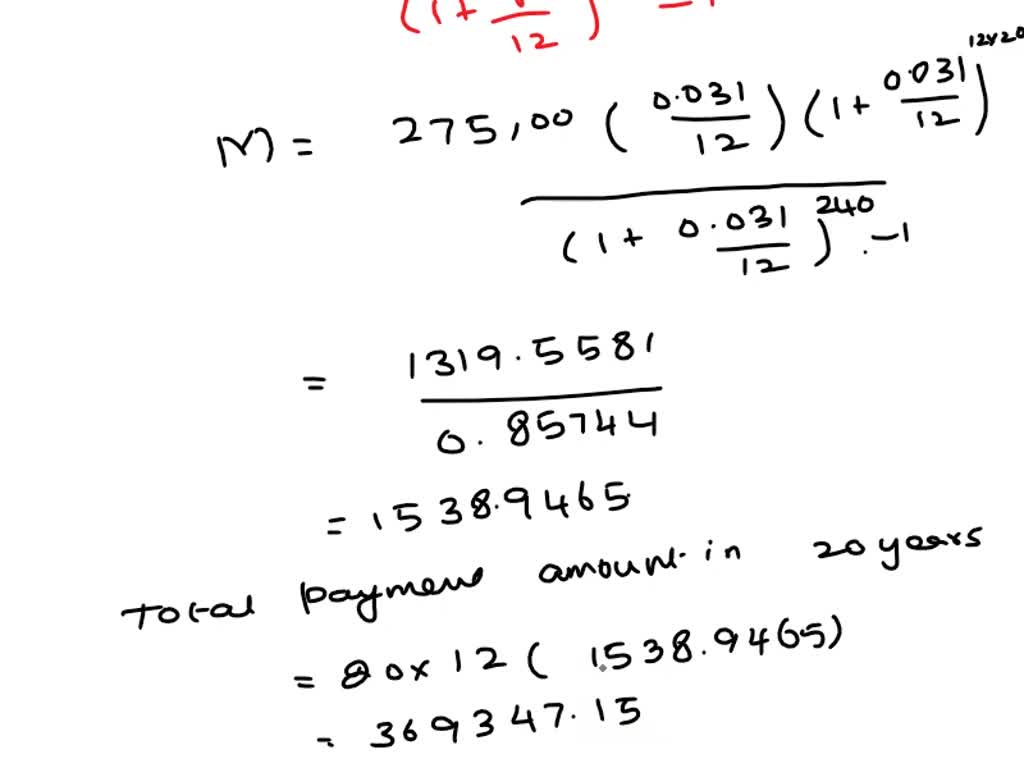 (1+ /12) -1
M = 275,00 (0.031/12)(1+ 0.031/12)^12x20
(1+ 0.031/12)^240 -1
= 1319.5581
0.85744
= 1538.9465
Total payment amount in 20 years
= 20x12 ( 1538.9465)
= 369347.15